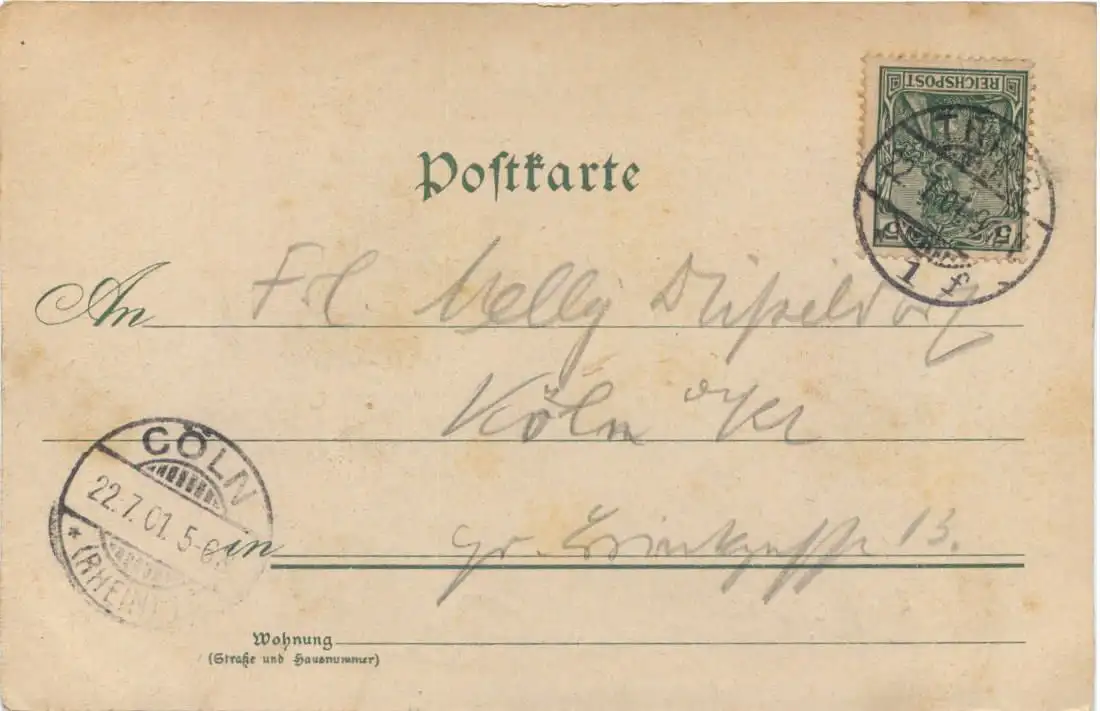 REICHSPOST
5 5
TRI
1 f
Postkarte
An Frl. Nelly Düsseldorf
Köln a/Rh
CÖLN
22.7.01. 5-6
* (RHEIN)
in gr. 13.
Wohnung
(Straße und Hausnummer)